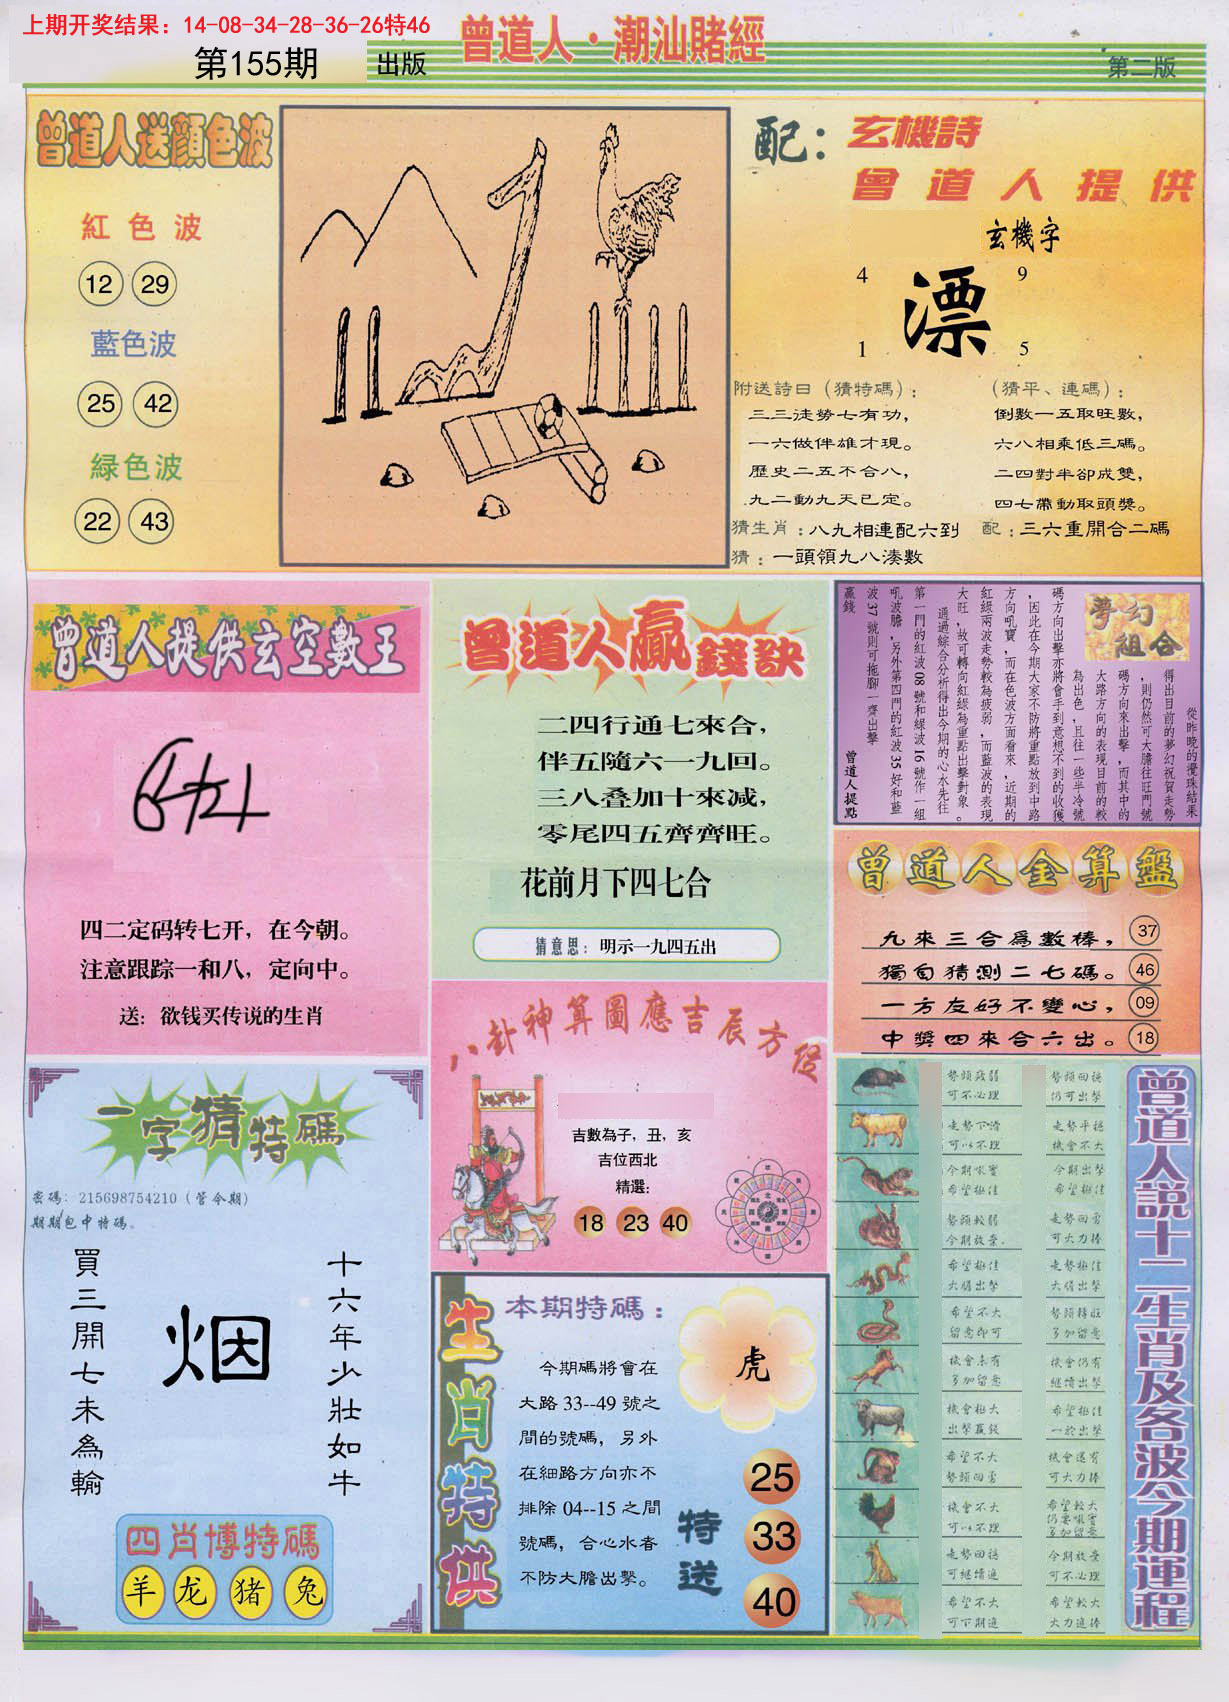 上期开奖结果：14-08-34-28-36-26特46
第155期
出版
曾道人·潮汕賭經
第二版
曾道人送顔色波
紅色波
12 29
藍色波
25 42
緑色波
22 43
配：
玄機詩
曾道人提供
玄機字
4 9
漂
1 5
附送詩曰（猜特碼）：
三三徒勢七有功，
一六做伴雄才現。
歷史二五不合八，
九二動九天已定。
（猜平、連碼）：
倒數一五取旺數，
六八相乘低三碼。
二四對半卻成雙，
四七帶動取頭獎。
猜生肖：八九相連配六到
配：三六重開合二碼
猜：一頭領九八湊數
曾道人提供玄空數王
四二定码转七开，在今朝。
注意跟踪一和八，定向中。
送：欲钱买传说的生肖
曾道人贏錢訣
二四行通七來合，
伴五隨六一九回。
三八叠加十來减，
零尾四五齊齊旺。
花前月下四七合
猜意思：明示一九四五出
夢幻組合
從昨晚的攪珠結果
得出目前的夢幻祝賀走勢
，則仍然可大膽往旺門號
碼方向來出擊，而其中的
大路方向的表現目前的較
為出色，且往一些半冷號
碼方向出擊亦將會手到意想不到的收獲
，因此在今期大家不防將重點放到中路
方向吼寶，而在色波方面看來，近期的
紅綠兩波走勢較為疲弱，而藍波的表現
大旺，故可轉向紅綠為重點出擊對象。
通過綜合分析得出今期的心水先往
第一門的紅波08號和綠波16號作一組
吼波膽，另外第四門的紅波35好和藍
波37號則可拖腳一齊出擊
贏錢
曾道人提點
曾道人金算盤
九來三合爲數棒， 37
獨自猜測二七碼。 46
一方友好不變心， 09
中獎四來合六出。 18
八卦神算圖應吉辰方位
吉數為子，丑，亥
吉位西北
精選：
18 23 40
一字猜特碼
密碼：215698754210（管令期）
期期包中特碼。
買三開七未為輸
烟
十六年少壯如牛
四肖博特碼
羊 龙 猪 兔
生肖特供
本期特碼：
虎
今期碼將會在
大路33--49號之
間的號碼，另外
在細路方向亦不
排除04--15之間
號碼，合心水者
不防大膽出擊。
特送
25
33
40
曾道人説十二生肖及各波今期運程
勢頭疲弱
可不必理
勢頭回穩
仍可出擊
走勢下滑
可以不理
走勢平穩
機會不大
今期吼寶
希望極佳
今期出擊
希望極佳
勢頭較弱
今期放棄.
走勢回勇
可大力捧
希望極佳
大膽出擊
走勢極佳
大膽出擊
希望不大
留意即可
勢頭轉旺
多加留意
機會未有
多加留意
機會仍有
繼續出擊
機會極大
出擊贏錢
希望極佳
一於出擊
希望不大
勢頭回勇
機會還有
可大力捧
機會不大
可以不理
希望較大
仍要吼實
多加留意
走勢回穩
可繼續追
今期放棄
可不必理
希望不大
可下期追
希望較大
大力追捧